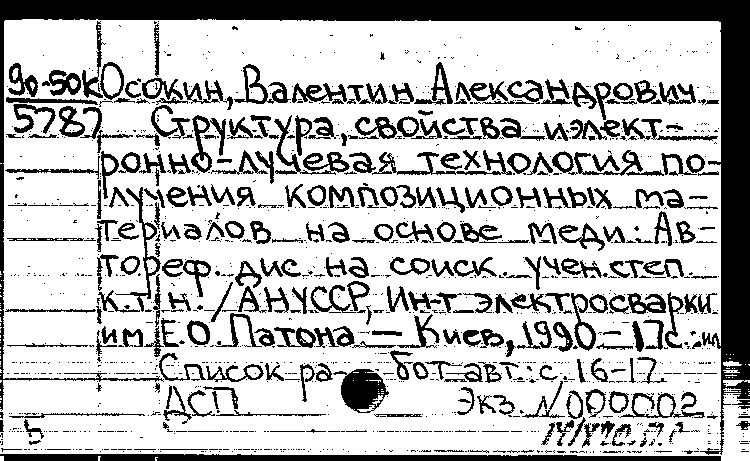 90-50к Осокин, Валентин Александрович
5787 Структура, свойства и элект-
ронно-лучевая технология по-
лучения композиционных ма-
териалов на основе меди: Ав-
тореф. дис. на соиск. учен. степ.
к.т.н. / АН УССР, Ин-т электросварки
им. Е.О. Патона. — Киев, 1990 — 17с.: ил
Список ра- бот авт.: с. 16-17.
ДСП Экз. N 000002
Б